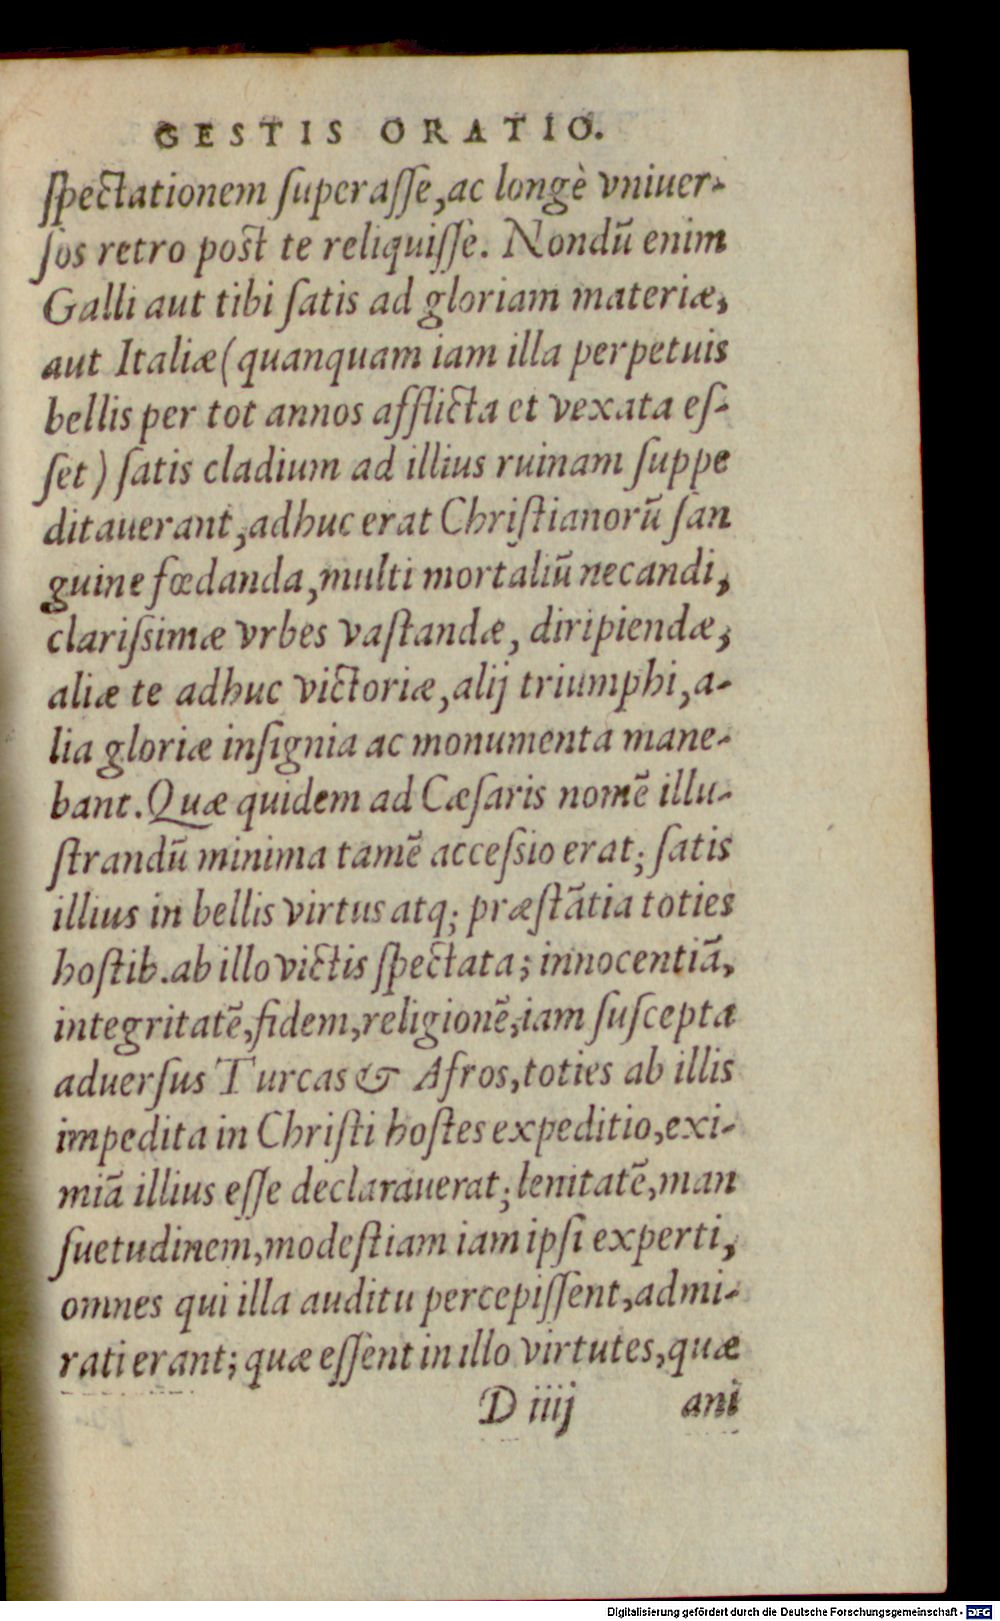 GESTIS ORATIO.
ſpectationem ſuperaſſe, ac longè vniuer-
ſos retro poſt te reliquiſſe. Nondū enim
Galli aut tibi ſatis ad gloriam materiæ,
aut Italiæ (quanquam iam illa perpetuis
bellis per tot annos afflicta et vexata eſ-
ſet) ſatis cladium ad illius ruinam ſuppe
ditauerant, adhuc erat Chriſtianorū ſan
guine fœdanda, multi mortaliū necandi,
clariſsimæ vrbes vaſtandæ, diripiendæ,
aliæ te adhuc victoriæ, alij triumphi, a-
lia gloriæ inſignia ac monumenta mane-
bant. Quæ quidem ad Cæſaris nomē illu-
ſtrandū minima tamē acceſsio erat; ſatis
illius in bellis virtus atq; præſtātia toties
hoſtib. ab illo victis ſpectata; innocentiā,
integritatē, fidem, religionē, iam ſuſcepta
aduerſus Turcas & Afros, toties ab illis
impedita in Chriſti hoſtes expeditio, exi-
miā illius eſſe declarauerat; lenitatē, man
ſuetudinem, modeſtiam iam ipſi experti,
omnes qui illa auditu percepiſſent, admi-
rati erant; quæ eſſent in illo virtutes, quæ
D iiij ani
Digitalisierung gefördert durch die Deutsche Forschungsgemeinschaft - DFG